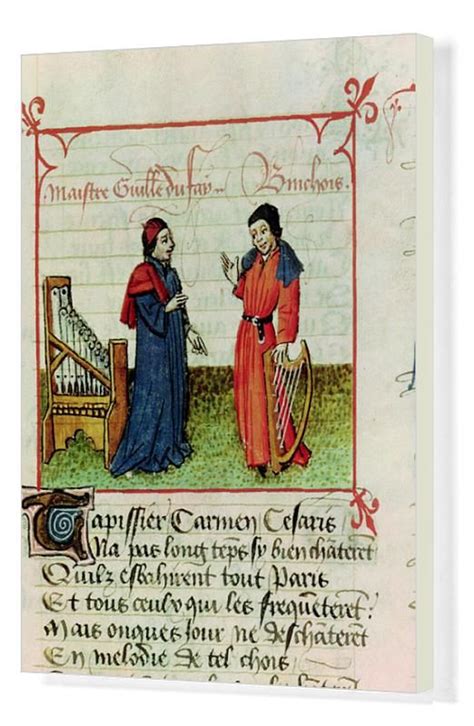 Maistre Guille du fay Binchois.
Tapissier Carmen Cesaris
Na pas long teps sy bien chāteret
Quilz esbahirent tout Paris
Et tous ceulx qui les frequēteret:
Mais onques jour ne deschāterēt
En melodie de tel chois